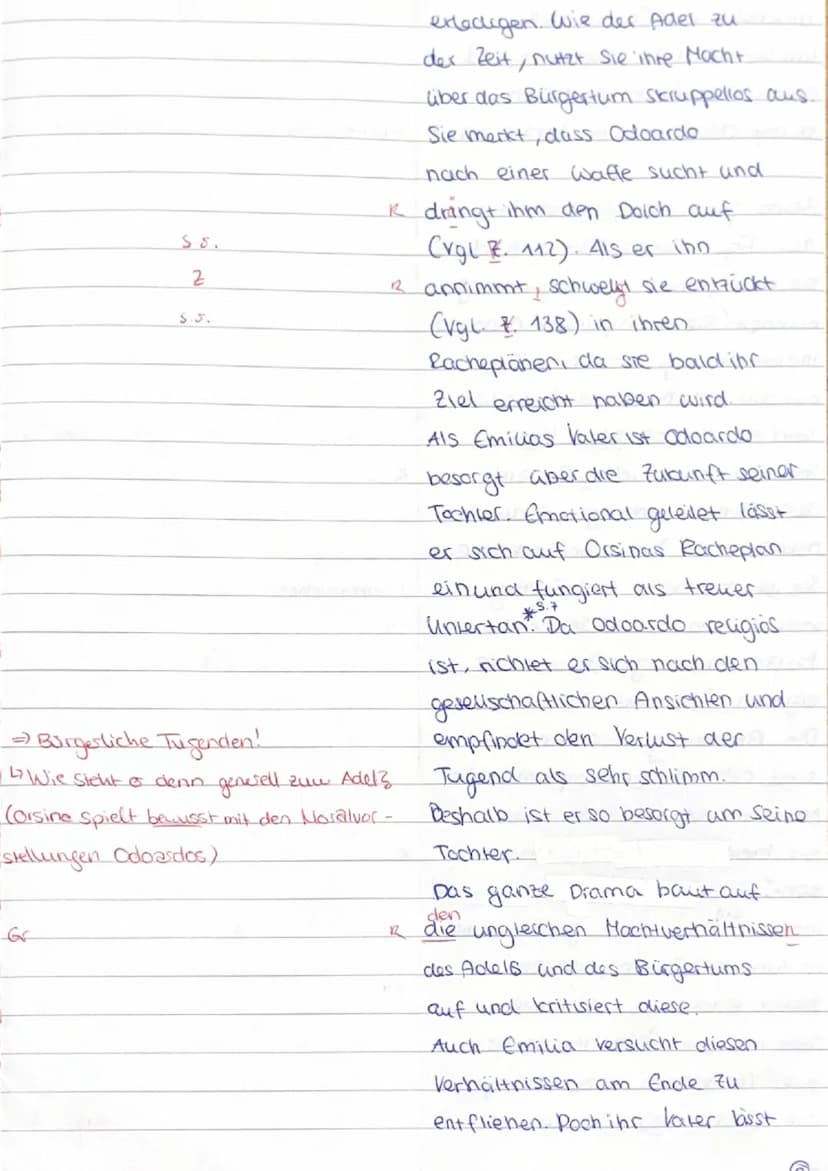 erledigen. Wie der Adel zu
der Zeit, nutzt Sie ihre Macht
über das Bürgertum skruppellos aus.
Sie merkt, dass Odoardo
nach einer Waffe sucht und
R drängt ihm den Dolch auf
s.o. (Vgl Z. 112). Als er ihn
Z R annimmt, schwelgt sie entzückt
s.o. (Vgl. Z. 138) in ihren
Racheplänen, da sie bald ihr
Ziel erreicht haben wird.
Als Emilias Vater ist Odoardo
besorgt über die Zukunft seiner
Tochter. Emotional geleitet lässt
er sich auf Orsinas Racheplan
ein und fungiert als treuer
Untertan.*S.7 Da Odoardo religiös
ist, richtet er sich nach den
gesellschaftlichen Ansichten und
⇒ Bürgerliche Tugenden! empfindet den Verlust der
↳ Wie steht er denn generell zum Adel? Tugend als sehr schlimm.
(Orsina spielt bewusst mit den Moralvor- Deshalb ist er so besorgt um seine
stellungen Odoardos) Tochter.
Das ganze Drama baut auf
den
Gr R die ungleichen Machtverhältnissen
des Adels und des Bürgertums
auf und kritisiert diese.
Auch Emilia versucht diesen
Verhältnissen am Ende zu
entfliehen. Doch ihr Vater lässt